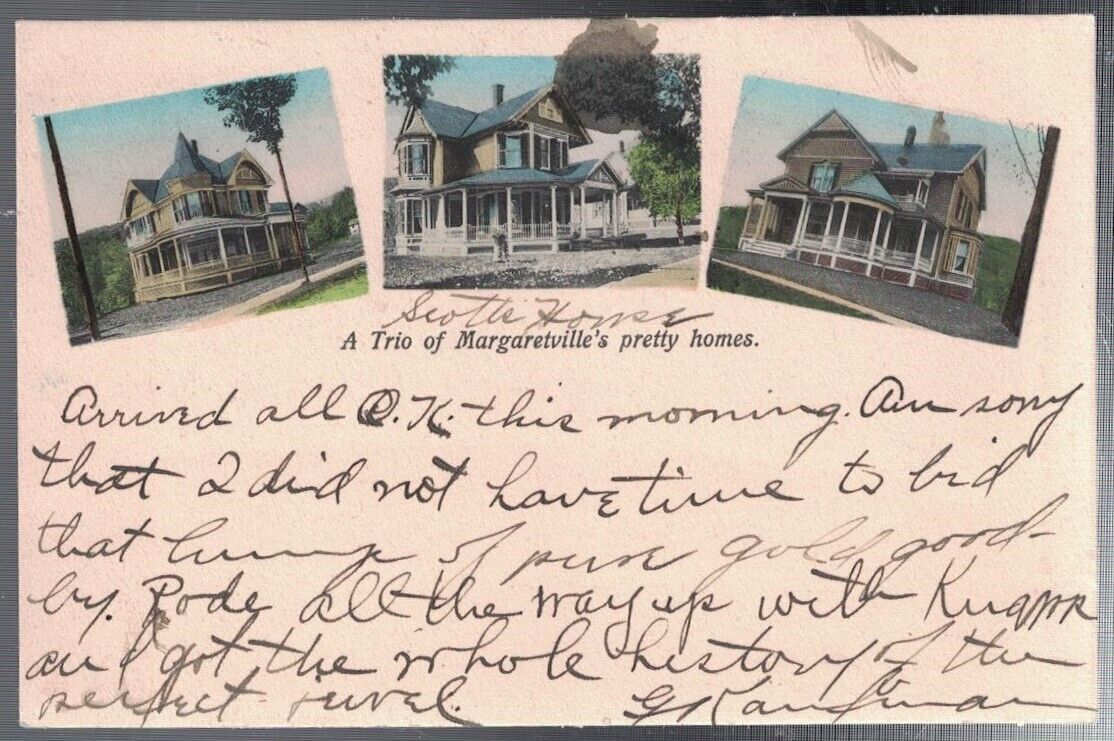 Scott's House
A Trio of Margaretville's pretty homes.
Arrived all O.K. this morning. Am sorry
that I did not have time to bid
that lump of pure gold good-
by. Rode all the way up with Knapp
an I got the whole history of the
perfect jewel. G Kaufman